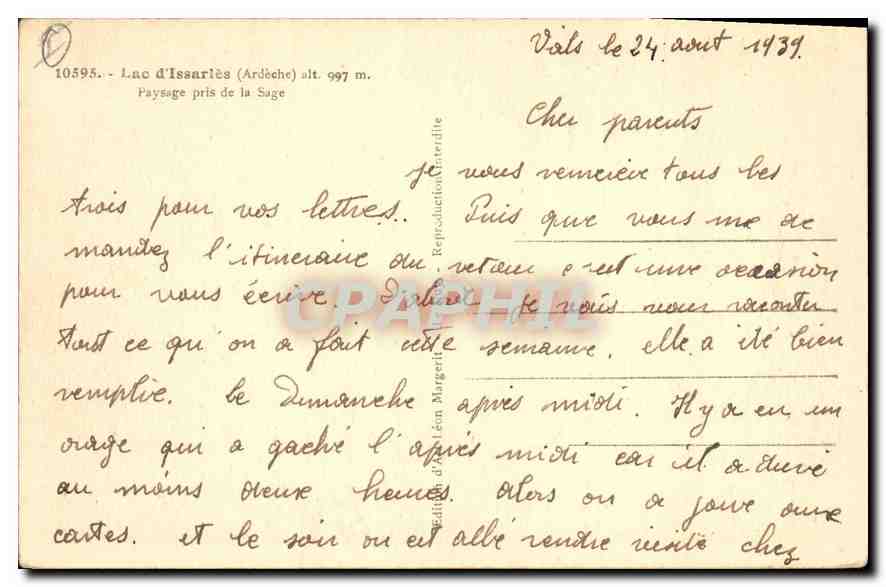 Vals le 24 aout 1939.
10595. - Lac d'Issarlès (Ardèche) alt. 997 m.
Paysage pris de la Sage
Cher parents
je vous remercie tous les
trois pour vos lettres. Puis que vous me de
mandez l'itineraire du retour c'est une occasion
pour vous écrire. D'abord je vais vous raconter
tout ce qu'on a fait cette semaine. elle a été bien
remplie. Le Dimanche après midi. Il y a eu un
orage qui a gaché l'après midi car il a duré
au moins deux heures. Alors on a joué aux
cartes. et le soir on est allé rendre visite chez
Edition d'Art Léon Margerit Reproduction interdite
CPAPHIL